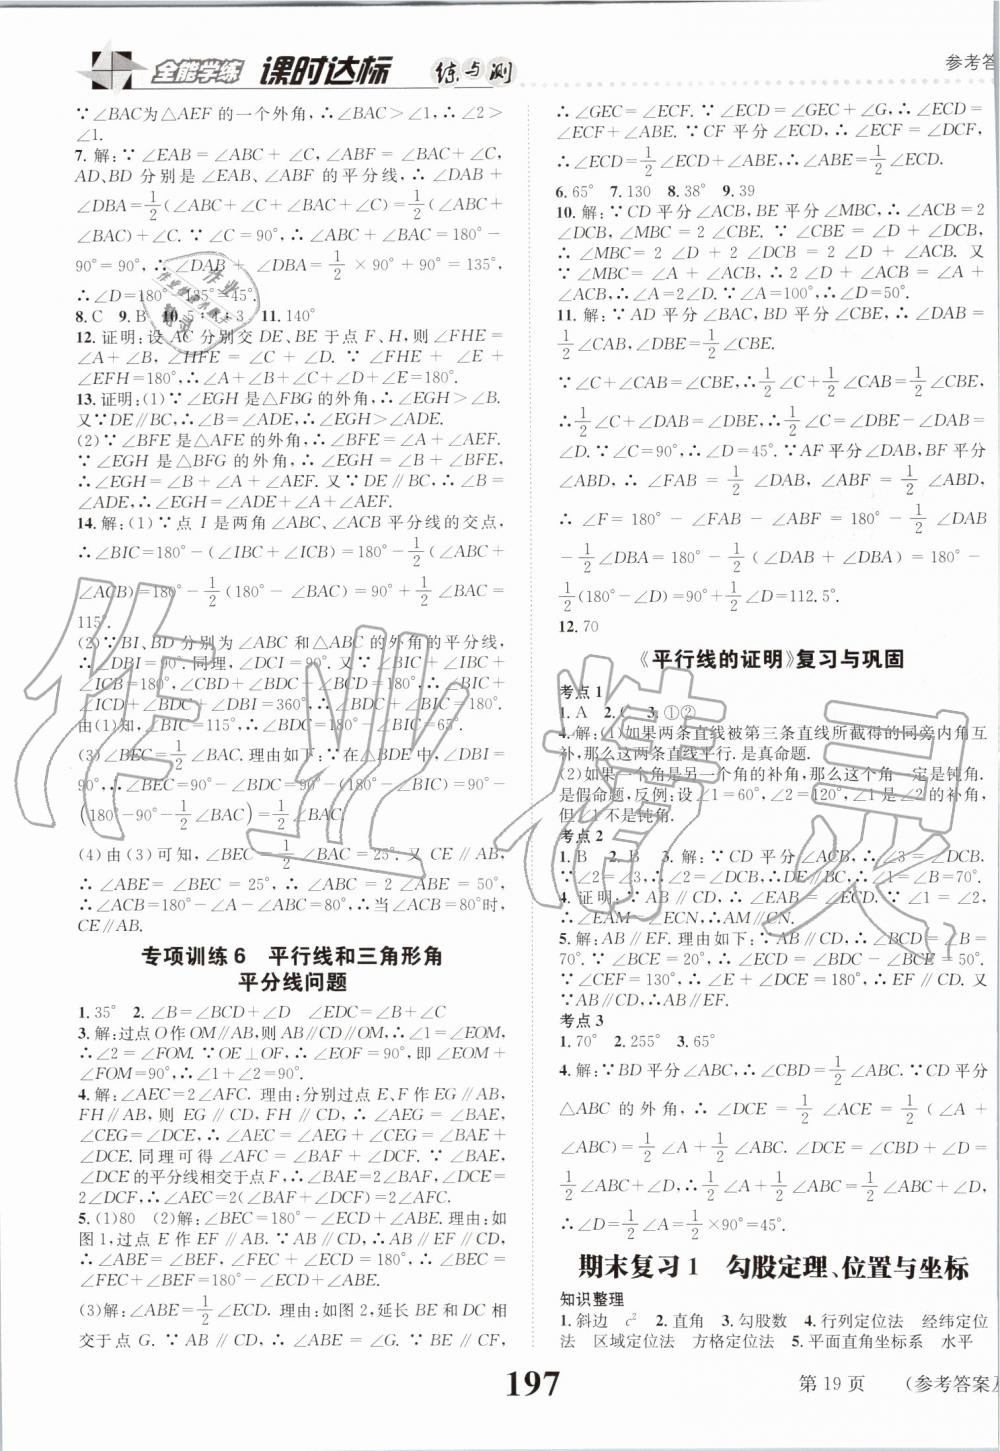 全能学练 课时达标 练与测
参考答
∵∠BAC为△AEF的一个外角,∴∠BAC>∠1,∴∠2>
∠1.
7. 解:∵∠EAB=∠ABC+∠C,∠ABF=∠BAC+∠C,
AD、BD 分别是∠EAB、∠ABF 的平分线,∴∠DAB+
∠DBA=1/2(∠ABC+∠C+∠BAC+∠C)=1/2(∠ABC+
∠BAC)+∠C. ∵∠C=90°,∴∠ABC+∠BAC=180°-
90°=90°,∴∠DAB+∠DBA=1/2×90°+90°=135°,
∴∠D=180°-135°=45°.
8. C 9. B 10. 5∶4∶3 11. 140°
12. 证明:设 AC 分别交 DE、BE 于点 F、H,则∠FHE=
∠A+∠B,∠HFE=∠C+∠D. ∵∠FHE+∠E+
∠EFH=180°,∴∠A+∠B+∠C+∠D+∠E=180°.
13. 证明:(1)∵∠EGH 是△FBG 的外角,∴∠EGH>∠B.
又∵DE∥BC,∴∠B=∠ADE,∴∠EGH>∠ADE.
(2)∵∠BFE 是△AFE 的外角,∴∠BFE=∠A+∠AEF.
∵∠EGH 是△BFG 的外角,∴∠EGH=∠B+∠BFE,
∴∠EGH=∠B+∠A+∠AEF. 又∵DE∥BC,∴∠B=
∠ADE,∴∠EGH=∠ADE+∠A+∠AEF.
14. 解:(1)∵点 I 是两角∠ABC、∠ACB 平分线的交点,
∴∠BIC=180°-(∠IBC+∠ICB)=180°-1/2(∠ABC+
∠ACB)=180°-1/2(180°-∠BAC)=90°+1/2∠BAC=
115°.
(2)∵BI、BD 分别为∠ABC 和△ABC 的外角的平分线,
∴∠DBI=90°. 同理,∠DCI=90°. 又∵∠BIC=∠IBC+
∠ICB=180°,∠CBD+∠BDC+∠BCD=180°,∴∠BIC
+∠DCI+∠BDC+∠DBI=360°,∴∠BIC+∠BDC=180°.
由(1)知,∠BIC=115°,∴∠BDC=180°-∠BIC=65°.
(3)∠BEC=1/2∠BAC. 理由如下:∵在△BDE 中,∠DBI=
90°,∴∠BEC=90°-∠BDC=90°-(180°-∠BIC)=90°-
(180°-90°-1/2∠BAC)=1/2∠BAC.
(4)由(3)可知,∠BEC=1/2∠BAC=25°. 又 CE∥AB,
∴∠ABE=∠BEC=25°,∴∠ABC=2∠ABE=50°,
∴∠ACB=180°-∠A-∠ABC=80°,∴当∠ACB=80°时,
CE∥AB.
专项训练6 平行线和三角形角
平分线问题
1. 35° 2. ∠B=∠BCD+∠D ∠EDC=∠B+∠C
3. 解:过点 O 作 OM∥AB,则 AB∥CD∥OM,∴∠1=∠EOM,
∴∠2=∠FOM. ∵OE⊥OF,∴∠EOF=90°,即∠EOM+
∠FOM=90°,∴∠1+∠2=90°.
4. 解:∠AEC=2∠AFC. 理由:分别过点 E、F 作 EG∥AB,
FH∥AB,则 EG∥CD,FH∥CD,∴∠AEG=∠BAE,
∠CEG=∠DCE,∴∠AEC=∠AEG+∠CEG=∠BAE+
∠DCE. 同理可得∠AFC=∠BAF+∠DCF. ∵∠BAE、
∠DCE 的平分线相交于点 F,∴∠BAE=2∠BAF,∠DCE=
2∠DCF,∴∠AEC=2(∠BAF+∠DCF)=2∠AFC.
5. (1)80 (2)解:∠BEC=180°-∠ECD+∠ABE. 理由:如
图1,过点 E 作 EF∥AB. ∵AB∥CD,∴AB∥EF∥CD,
∴∠ABE=∠BEF,∠FEC+∠ECD=180°,∴∠BEC=
∠FEC+∠BEF=180°-∠ECD+∠ABE.
(3)解:∠ABE=1/2∠ECD. 理由:如图2,延长 BE 和 DC 相
交于点 G. ∵AB∥CD,∴∠ABE=∠G. ∵BE∥CF,
∴∠GEC=∠ECF. ∵∠ECD=∠GEC+∠G,∴∠ECD=
∠ECF+∠ABE. ∵CF 平分∠ECD,∴∠ECF=∠DCF,
∴∠ECD=1/2∠ECD+∠ABE,∴∠ABE=1/2∠ECD.
6. 65° 7. 130 8. 38° 9. 39
10. 解:∵CD 平分∠ACB,BE 平分∠MBC,∴∠ACB=2
∠DCB,∠MBC=2∠CBE. ∵∠CBE=∠D+∠DCB,
∴∠MBC=2∠D+2∠DCB=2∠D+∠ACB. 又
∵∠MBC=∠A+∠ACB,∴2∠D+∠ACB=∠A+
∠ACB,∴∠A=2∠D. ∵∠A=100°,∴∠D=50°.
11. 解:∵AD 平分∠BAC,BD 平分∠CBE,∴∠DAB=
1/2∠CAB,∠DBE=1/2∠CBE.
∵∠C+∠CAB=∠CBE,∴1/2∠C+1/2∠CAB=1/2∠CBE,
∴1/2∠C+∠DAB=∠DBE,∴1/2∠C=∠DBE-∠DAB=
∠D. ∵∠C=90°,∴∠D=45°. ∵AF 平分∠DAB,BF 平分
∠ABD,∴∠FAB=1/2∠DAB,∠ABF=1/2∠ABD,
∴∠F=180°-∠FAB-∠ABF=180°-1/2∠DAB
-1/2∠DBA=180°-1/2(∠DAB+∠DBA)=180°-
1/2(180°-∠D)=90°+1/2∠D=112.5°.
12. 70
《平行线的证明》复习与巩固
考点1
1. A 2. C 3. ①②
4. 解:(1)如果两条直线被第三条直线所截得的同旁内角互
补,那么这两条直线平行. 是真命题.
(2)如果一个角是另一个角的补角,那么这个角一定是钝角.
是假命题,反例:设∠1=60°,∠2=120°,∠1是∠2的补角,
但∠1不是钝角.
考点2
1. B 2. B 3. 解:∵CD 平分∠ACB,∴∠3=∠DCB.
∵∠2=∠3,∴∠2=∠DCB,∴DE∥BC,∴∠1=∠B=70°.
4. 证明:∵AB∥CD,∴∠EAB=∠ECD. ∵∠1=∠2,
∴∠EAM=∠ECN,∴AM∥CN.
5. 解:AB∥EF. 理由如下:∵AB∥CD,∴∠BCD=∠B=
70°. ∵∠BCE=20°,∴∠ECD=∠BCD-∠BCE=50°.
∵∠CEF=130°,∴∠E+∠DCE=180°,∴EF∥CD. 又
∵AB∥CD,∴AB∥EF.
考点3
1. 70° 2. 255° 3. 65°
4. 解:∵BD 平分∠ABC,∴∠CBD=1/2∠ABC. ∵CD 平分
△ABC 的外角,∴∠DCE=1/2∠ACE=1/2(∠A+
∠ABC)=1/2∠A+1/2∠ABC. ∵∠DCE=∠CBD+∠D=
1/2∠ABC+∠D,∴1/2∠A+1/2∠ABC=1/2∠ABC+∠D,
∴∠D=1/2∠A=1/2×90°=45°.
期末复习1 勾股定理、位置与坐标
知识整理
1. 斜边 c² 2. 直角 3. 勾股数 4. 行列定位法 经纬定位
法 区域定位法 方格定位法 5. 平面直角坐标系 水平
197
第19页 (参考答案及
作业精灵